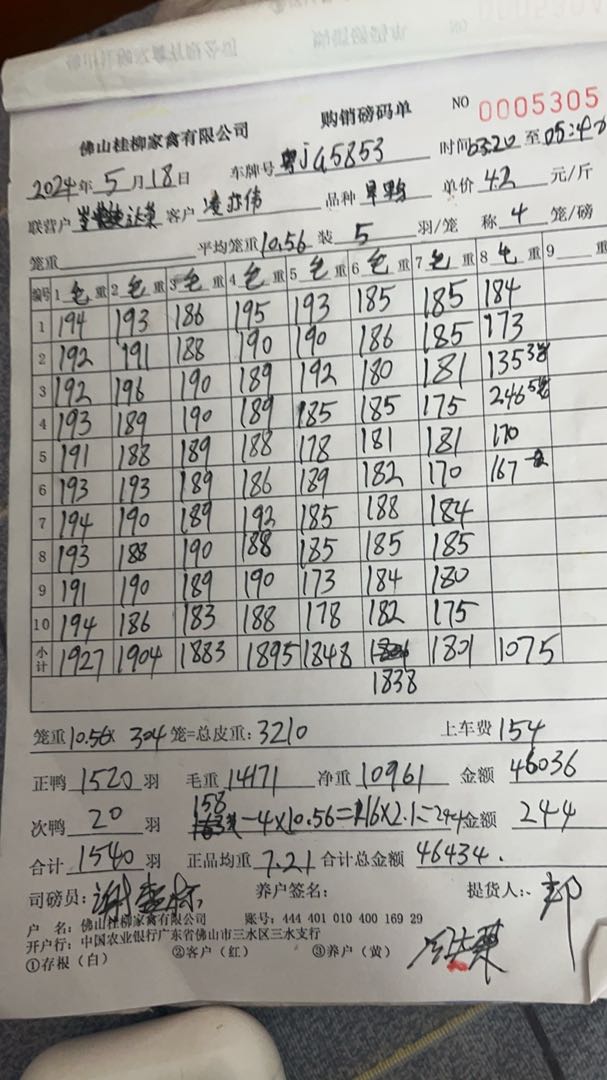 购销磅码单 NO 0005305
佛山桂柳家禽有限公司
2024年5月18日 车牌号 粤JG5853 时间 03:20 至 05:40
联营户 达荣 客户 凌亦伟 品种 旱鸭 单价 4.2 元/斤
笼重 平均笼重 10.56 装 5 羽/笼 称 4 笼/磅
编号 1 毛 重 2 毛 重 3 毛 重 4 毛 重 5 毛 重 6 毛 重 7 毛 重 8 毛 重 9 重
1 194 193 186 195 193 185 185 184
2 192 191 188 190 190 186 185 173
3 192 196 190 189 192 180 181 135 3笼
4 193 189 190 189 185 185 175 246 5笼
5 191 188 189 188 178 181 181 170
6 193 193 189 186 189 182 170 167
7 194 190 189 192 185 188 184
8 193 188 190 188 185 185 185
9 191 190 189 190 173 184 180
10 194 186 183 188 178 182 175
小计 1927 1904 1883 1895 1848 1801 1075
1838
笼重 10.56 X 304 笼=总皮重: 3210 上车费 154
正鸭 1520 羽 毛重 14171 净重 10961 金额 46036
158
次鸭 20 羽 -4×10.56=116×2.1=244 金额 244
合计 1540 羽 正品均重 7.21 合计总金额 46434.
司磅员: 养户签名: 提货人:
户 名: 佛山桂柳家禽有限公司 账号: 444 401 010 400 169 29
开户行: 中国农业银行广东省佛山市三水区三水支行
①存根（白） ②客户（红） ③养户（黄）